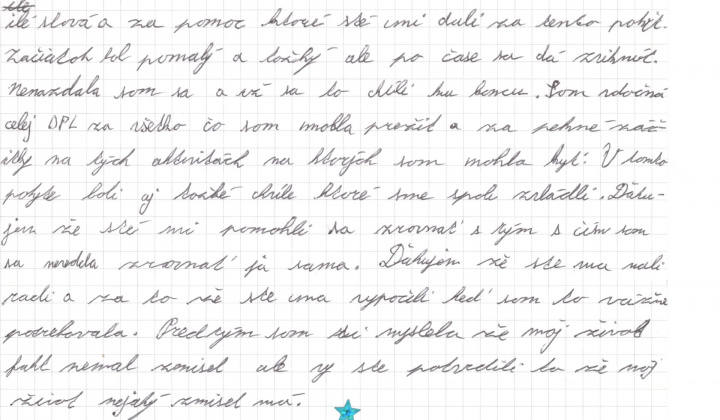 ité slová a za pomoc ktoré ste mi dali za tento pobyt.
Začiatok bol pomalý a ťažký ale po čase sa dá zvihnúť.
Nenazdala som sa a už sa to chíli ku koncu. Som vdočná
celej DPL za všetko čo som mohla prežiť a za pekné záž-
itky na tých aktivitách na ktorých som mohla byť. V tomto
pobyte boli aj ťažké chvíle ktoré sme spolu zvládli. Ďaku-
jem že ste mi pomohli sa zrovnať s tým s čím som
sa nevedela zrovnať ja sama. Ďakujem že ste ma mali
radi a za to že ste ma vypočili keď som to vážne
potrebovala. Predtým som si myslela že môj život
fakt nemal zmisel ale vy ste potvrdili to že môj
život nejaký zmisel má.